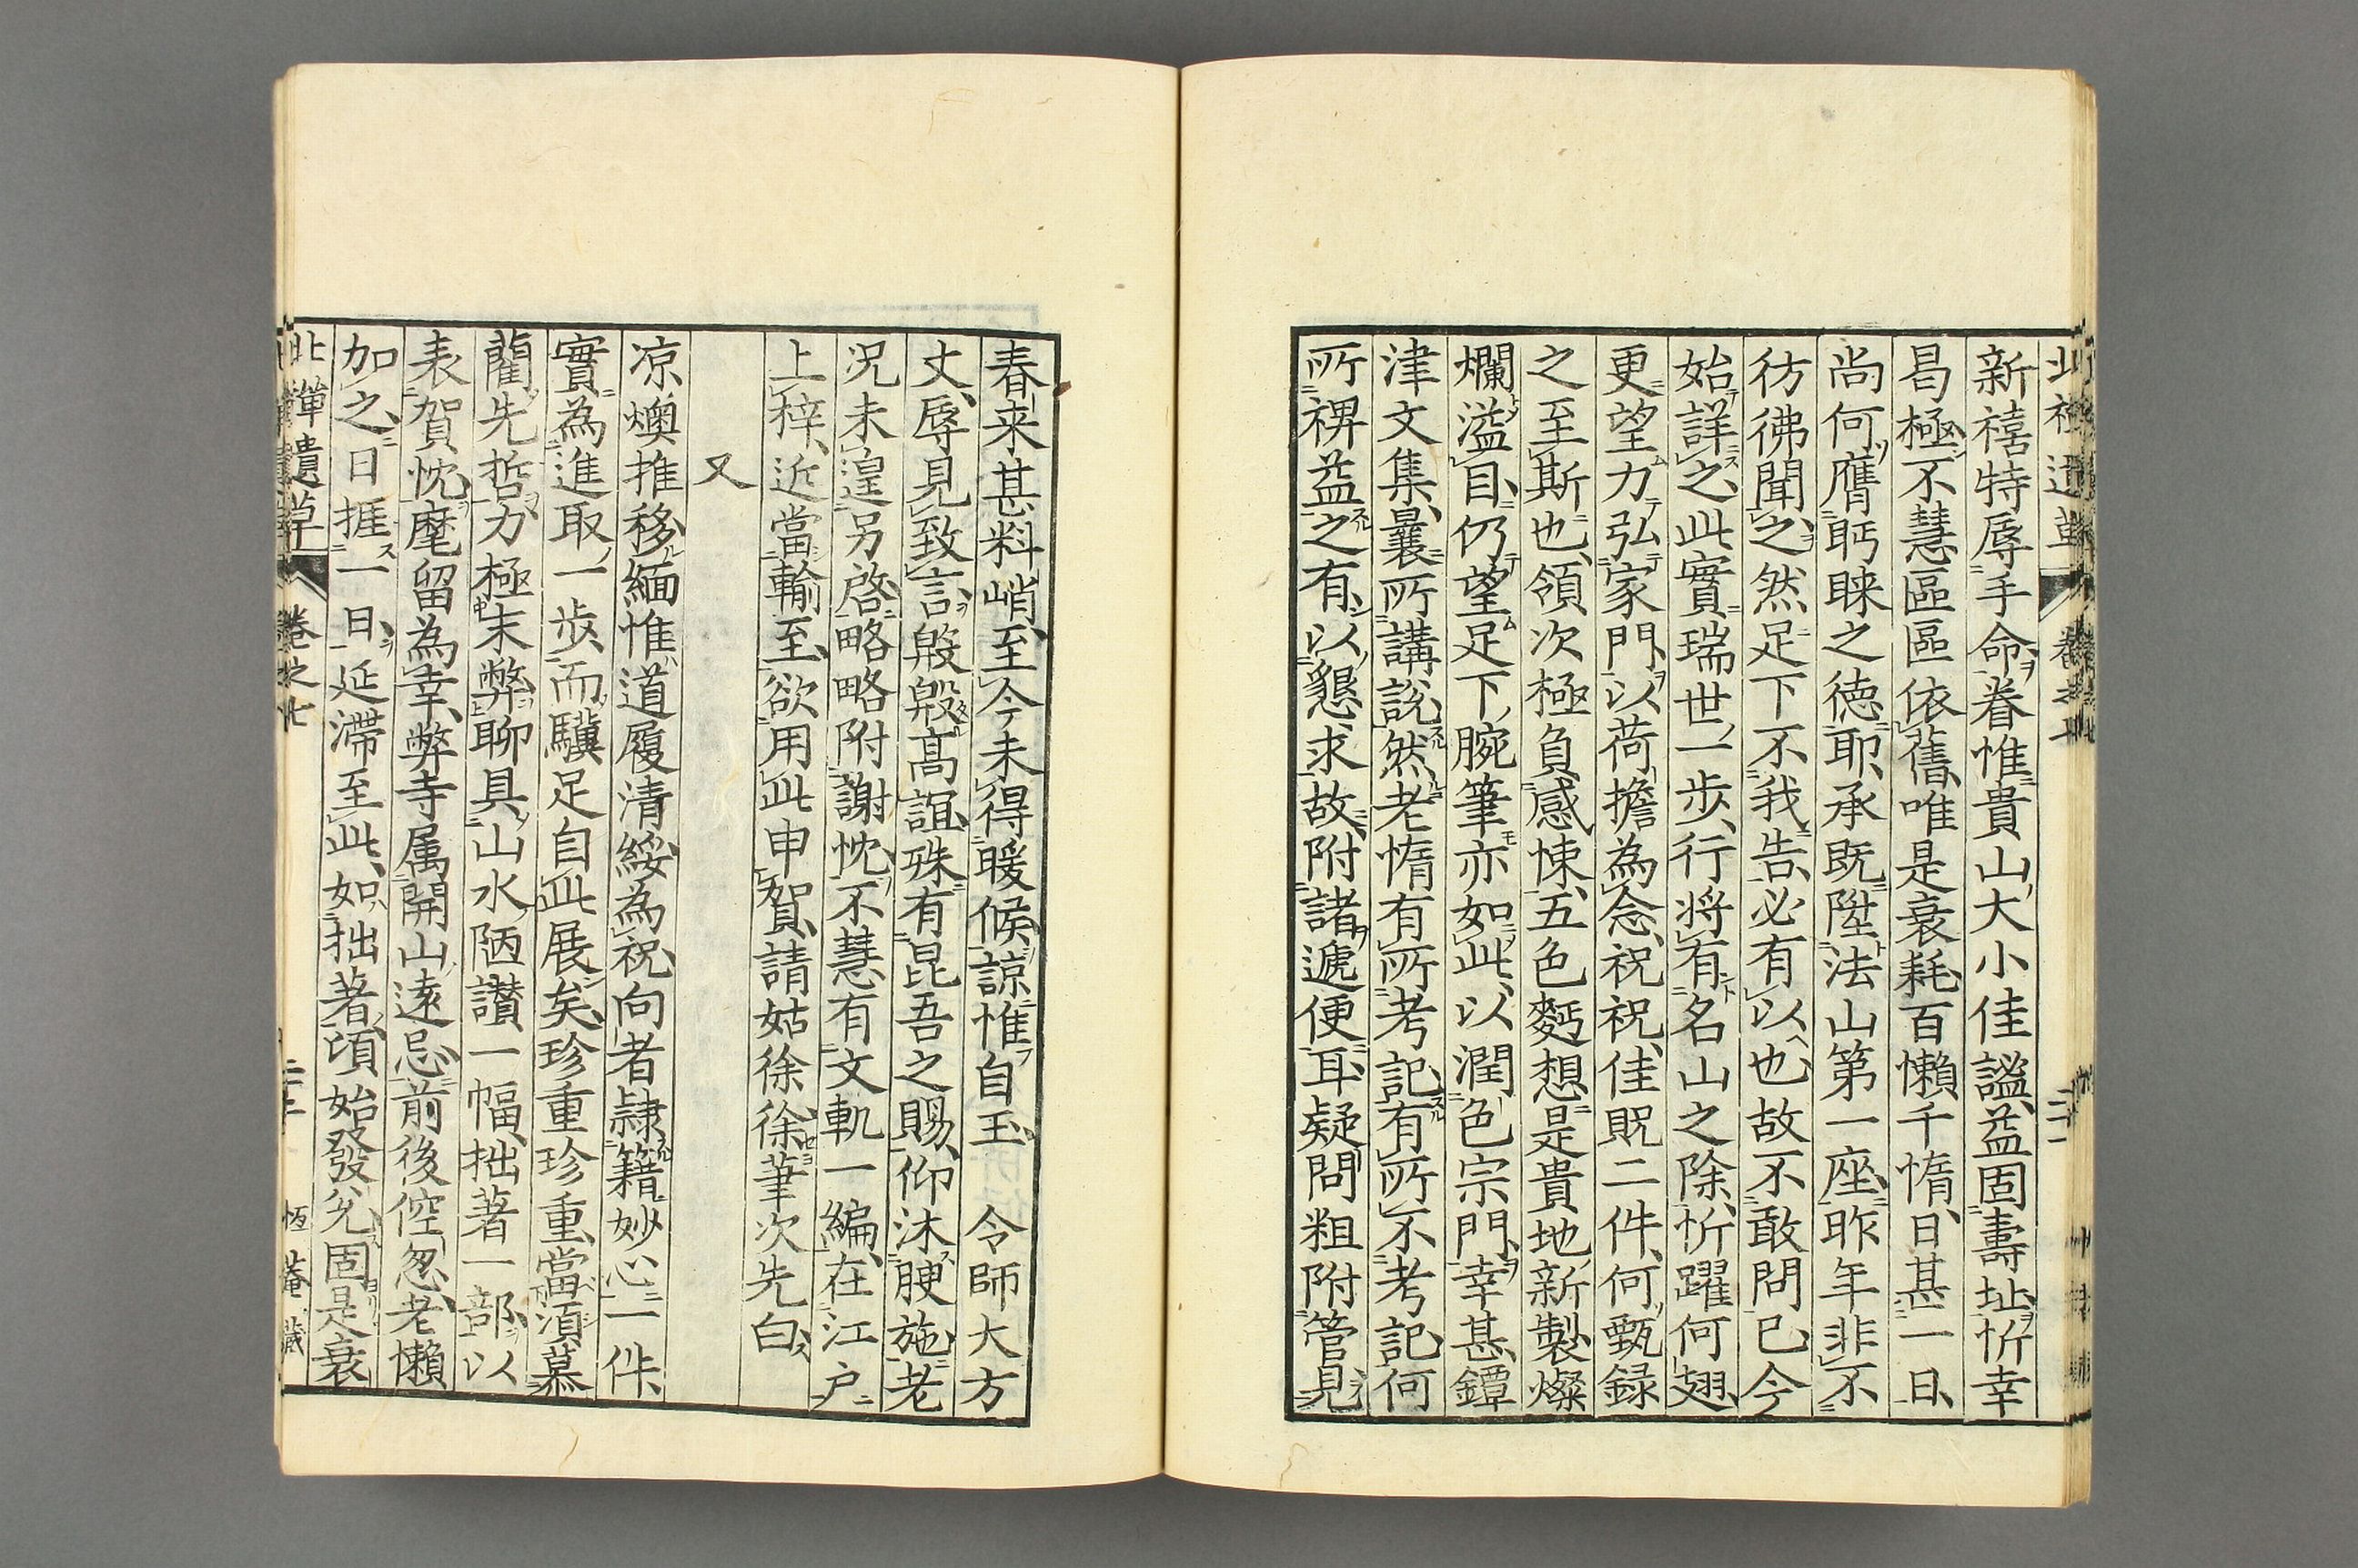 新禧特辱手命眷惟貴山大小佳謐益固壽址忻幸
曷極不慧區區依舊唯是衰耗百懶千惰日甚一日
尚何膺眄睞之德耶承既陞法山第一座昨年非不
彷彿聞之然足下不我告必有以也故不敢問已今
始詳之此實瑞世一步行將有名山之除忻躍何翅
更望力弘家門以荷擔為念祝祝佳貺二件何甄録
之至斯也領次極負感悚五色麪想是貴地新製燦
爛溢目仍望足下腕筆亦如此以潤色宗門幸甚鐔
津文集曩所講説然老惰有所考記有所不考記何
所裨益之有以懇求故附諸遞便耳疑問粗附管見
春来甚料峭至今未得暖候諒惟自玉　令師大方
丈辱見致言慇慇高誼殊有昆吾之賜仰沐腴施老
況未遑另啓略略附謝忱不慧有文軌一編在江戸
上梓近當輸至欲用此申賀請姑徐徐筆次先白
又
凉燠推移緬惟道履清綏為祝向者隷籍妙心一件
實為進取一歩而驥足自此展矣珍重珍重當須慕
藺先哲力極末弊聊具山水陋讃一幅拙著一部以
表賀忱麾留為幸弊寺属開山遠忌前後倥偬老懶
加之日捱一日延滯至此如拙著頃始發兌固是衰
北禪遺草　卷之七　恆菴藏